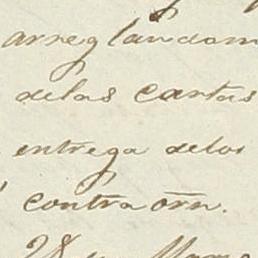 arreglandom
delas cartas
entrega delos
contra orn.
28